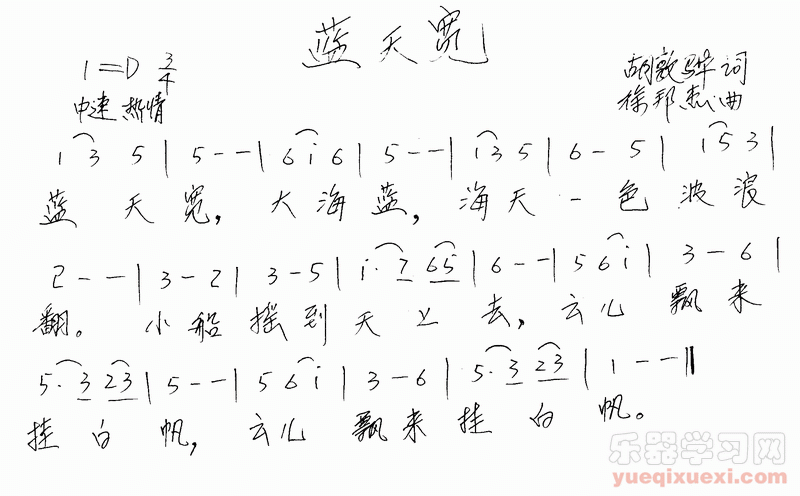 蓝天宽
1=D 3/4
胡敦骅词
中速 热情
徐邦杰曲
1 3 5 | 5 - - | 6 i 6 | 5 - - | i 3 5 | 6 - 5 | i 5 3 |
蓝 天 宽, 大 海 蓝, 海 天 一 色 波 浪
2 - - | 3 - 2 | 3 - 5 | i. 7 6 5 | 6 - - | 5 6 i | 3 - 6 |
翻。 小 船 摇 到 天 上 去, 云 儿 飘 来
5. 3 2 3 | 5 - - | 5 6 i | 3 - 6 | 5. 3 2 3 | 1 - - ‖
挂 白 帆, 云 儿 飘 来 挂 白 帆。
乐器学习网
yueqixuexi.com